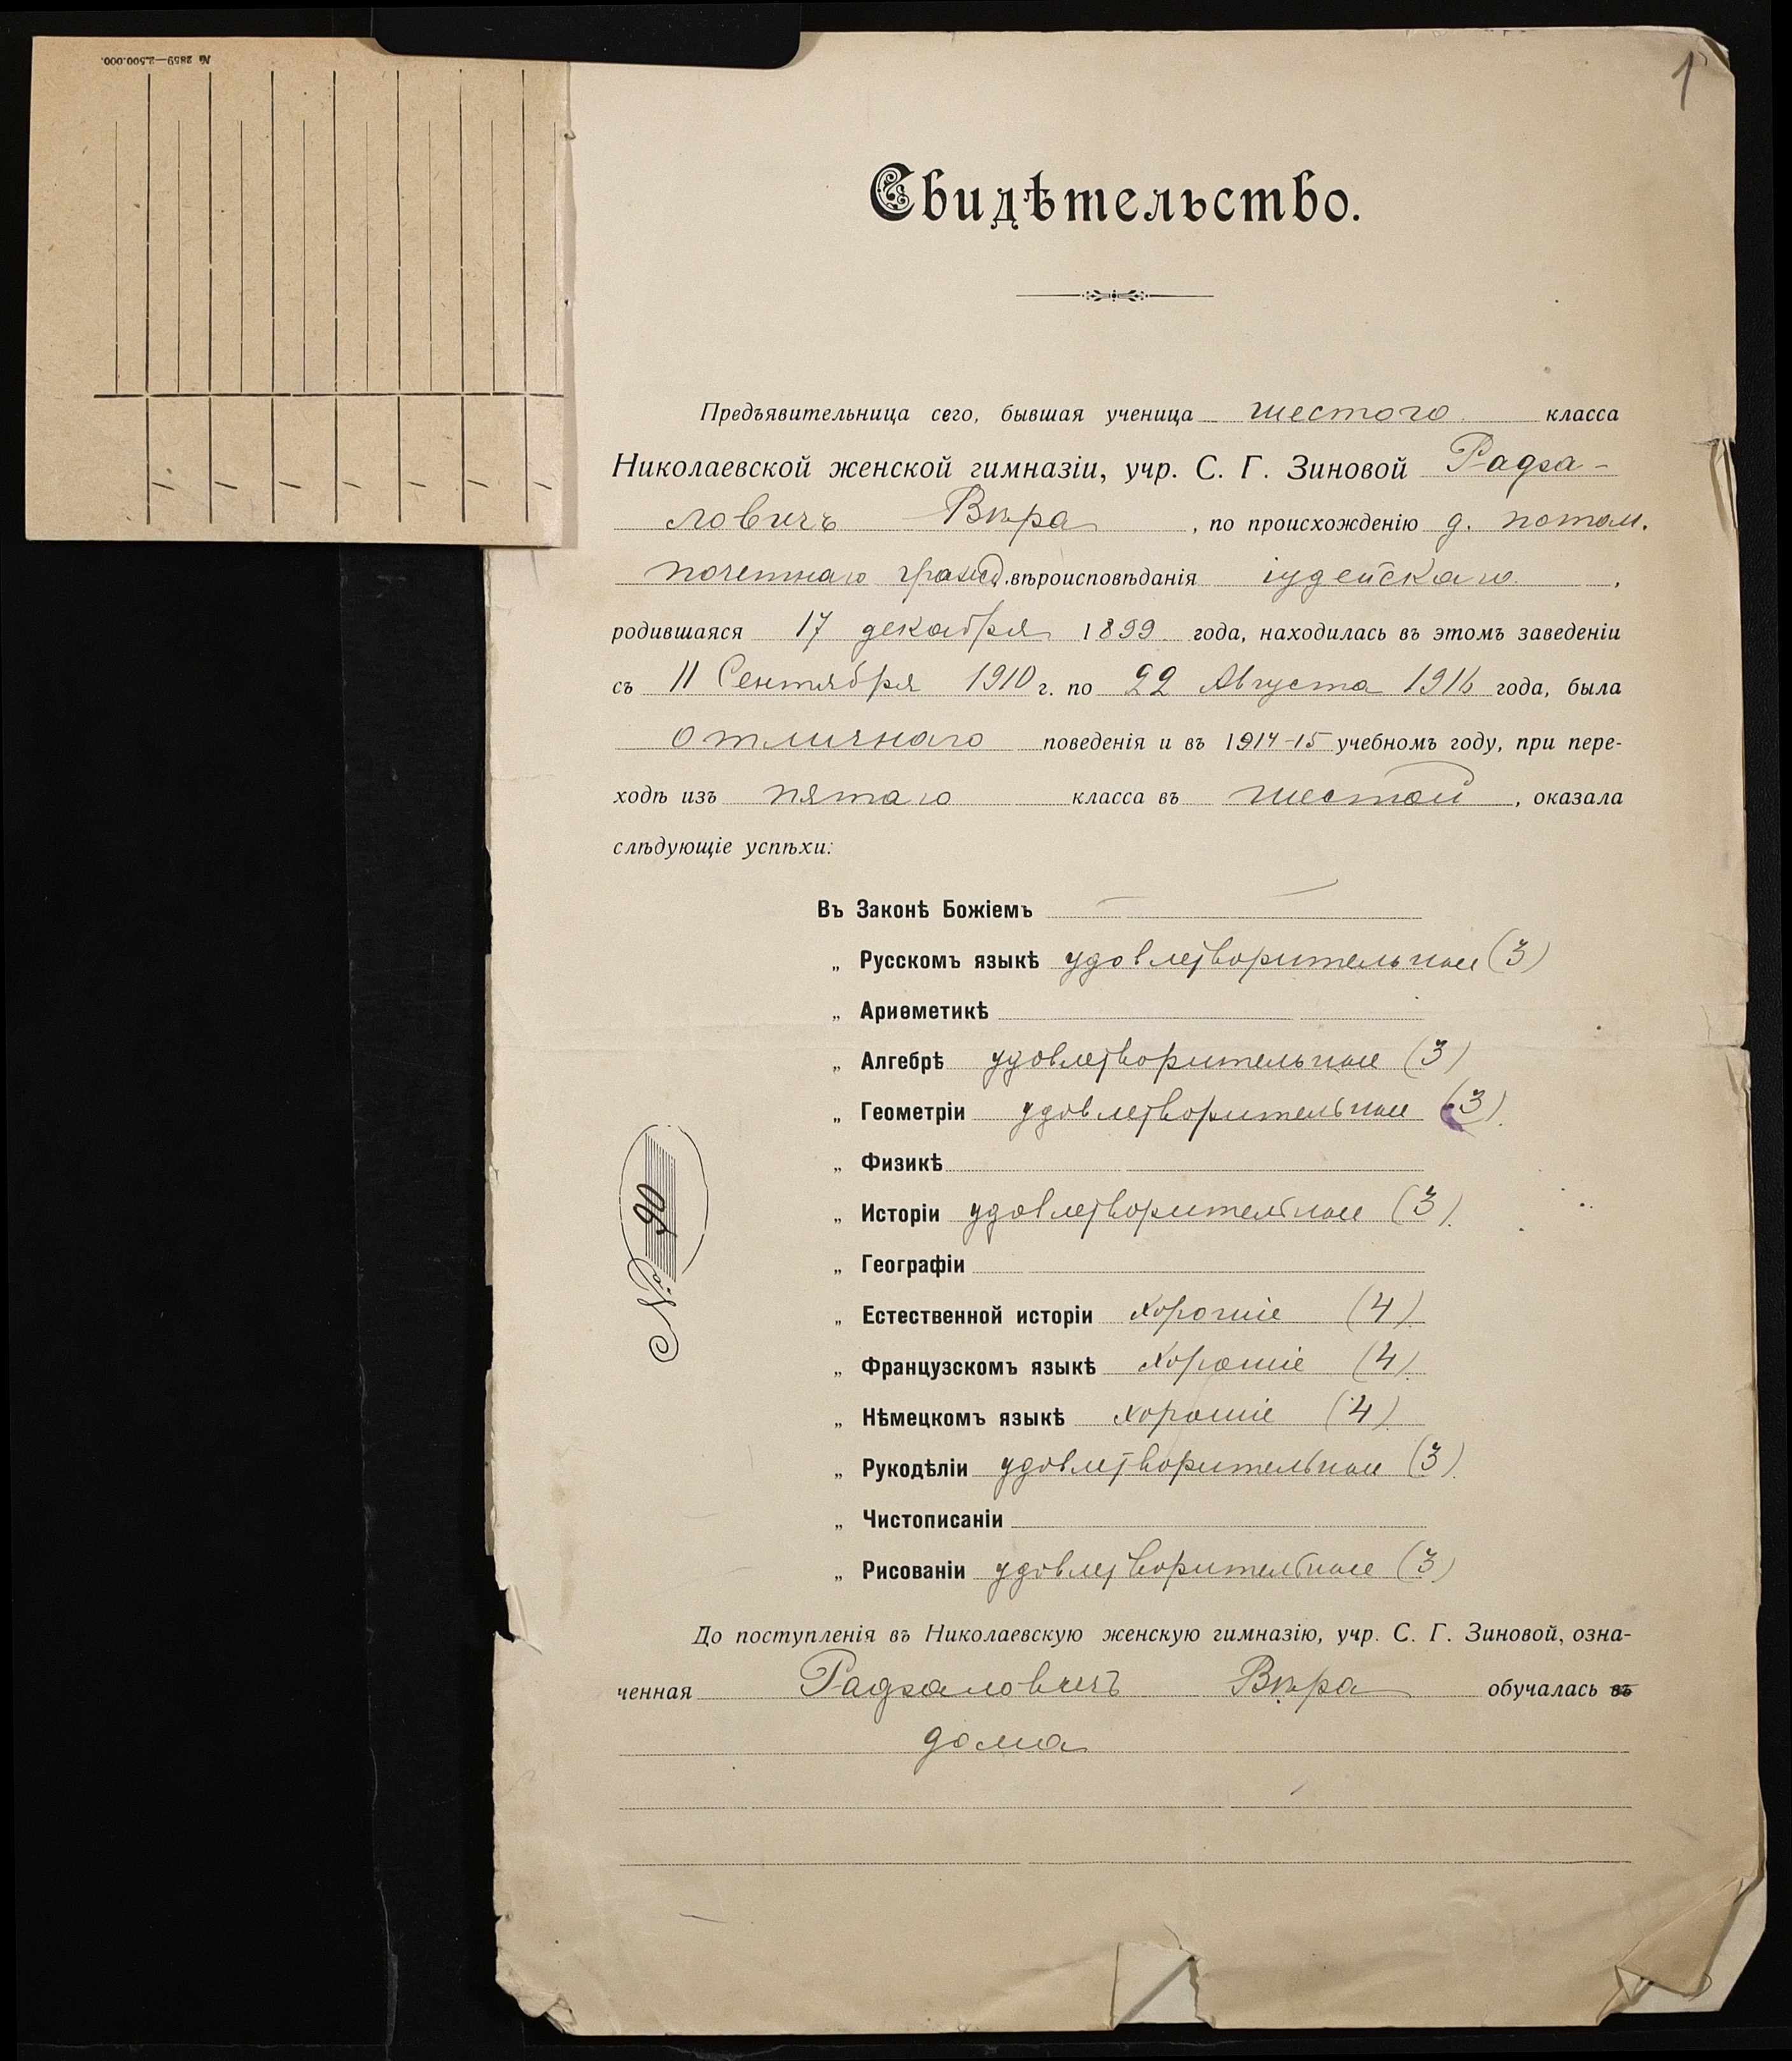 № 2859—2.500.000.
1
Свидѣтельство.
Предъявительница сего, бывшая ученица шестого класса
Николаевской женской гимназіи, учр. С. Г. Зиновой Радза-
ловичъ Вѣра, по происхожденію д. потом.
почетнаго гражд. вѣроисповѣданія іудейскаго,
родившаяся 17 декабря 1899 года, находилась въ этомъ заведеніи
съ 11 Сентября 1910 г. по 22 Августа 1916 года, была
отличнаго поведенія и въ 1914-15 учебномъ году, при пере-
ходѣ изъ пятаго класса въ шестой, оказала
слѣдующіе успѣхи:
Въ Законѣ Божіемъ —
„ Русскомъ языкѣ удовлетворительные (3)
„ Ариѳметикѣ
„ Алгебрѣ удовлетворительные (3)
„ Геометріи удовлетворительные (3).
„ Физикѣ
„ Исторіи удовлетворительные (3).
„ Географіи
„ Естественной исторіи хорошіе (4).
„ Французскомъ языкѣ хорошіе (4).
„ Нѣмецкомъ языкѣ хорошіе (4).
„ Рукодѣліи удовлетворительные (3).
„ Чистописаніи
„ Рисованіи удовлетворительные (3)
№ 90
До поступленія въ Николаевскую женскую гимназію, учр. С. Г. Зиновой, озна-
ченная Радзаловичъ Вѣра обучалась въ
дома